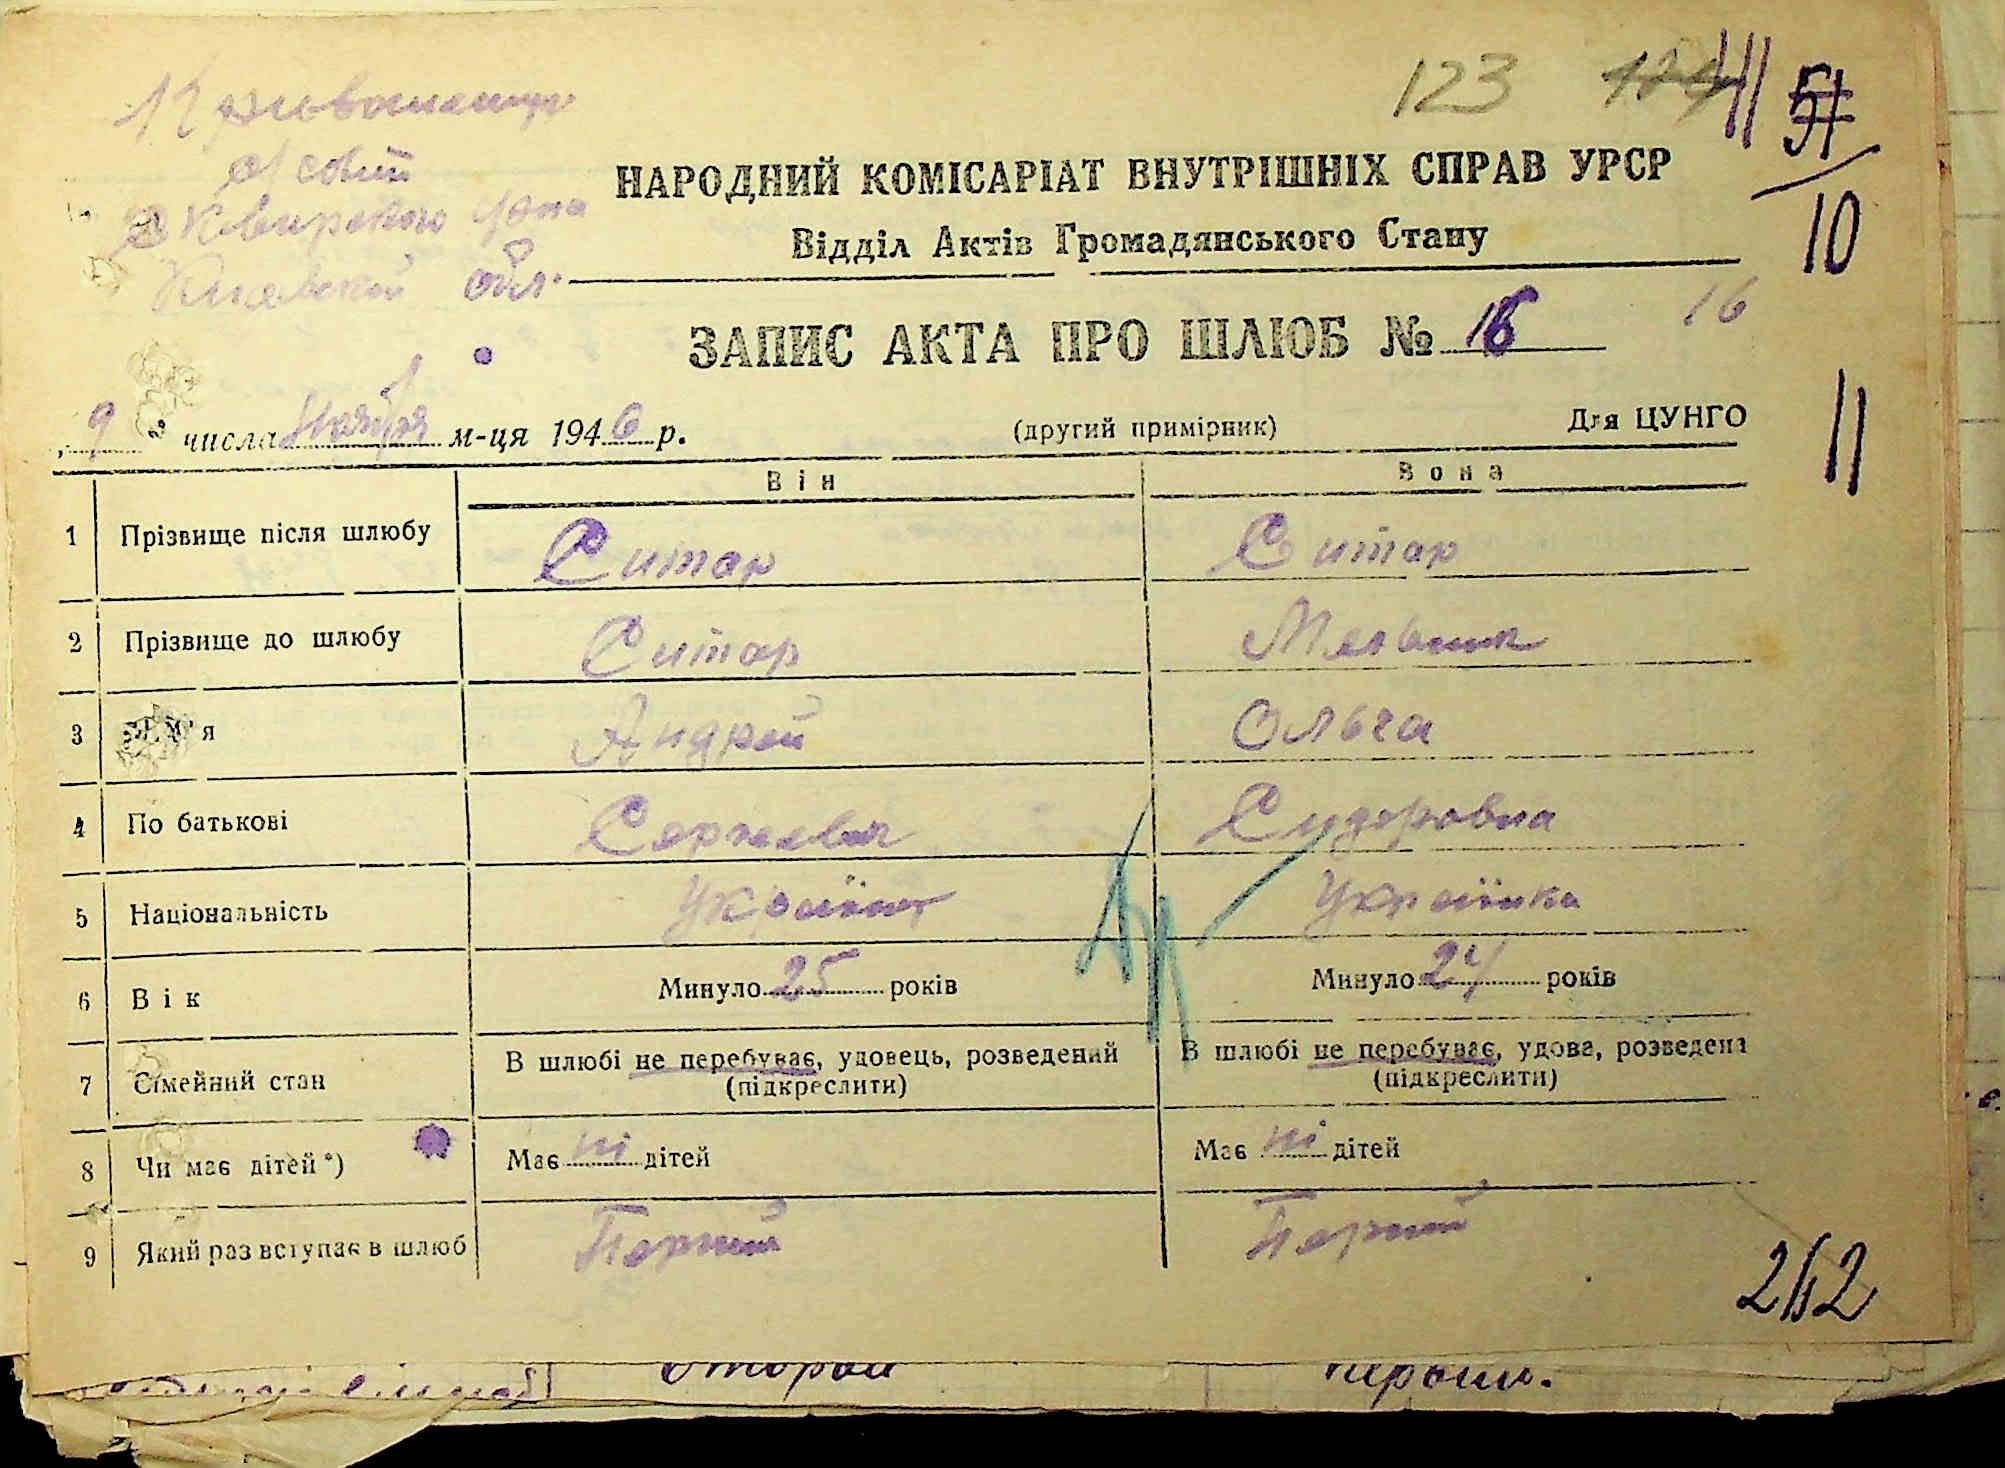 123 41 51
10
с/совіт
Сквирского р-она
Киевской обл.
НАРОДНИЙ КОМІСАРІАТ ВНУТРІШНІХ СПРАВ УРСР
Відділ Актів Громадянського Стану
ЗАПИС АКТА ПРО ШЛЮБ № 16 16
„ 9 " числа Ноября м-ця 1946 р. (другий примірник) Для ЦУНГО
11
Він Вона
1 Прізвище після шлюбу Ситар Ситар
2 Прізвище до шлюбу Ситар Мельник
3 Ім'я Андрей Ольга
4 По батькові Сергеевич Сидоровна
5 Національність Україниц Українка
6 Вік Минуло 25 років Минуло 24 років
7 Сімейний стан В шлюбі не перебуває, удовець, розведений (підкреслити) В шлюбі не перебуває, удова, розведена (підкреслити)
8 Чи має дітей*) Має ні дітей Має ні дітей
9 Який раз вступає в шлюб Перший Перший
212
второй первый.